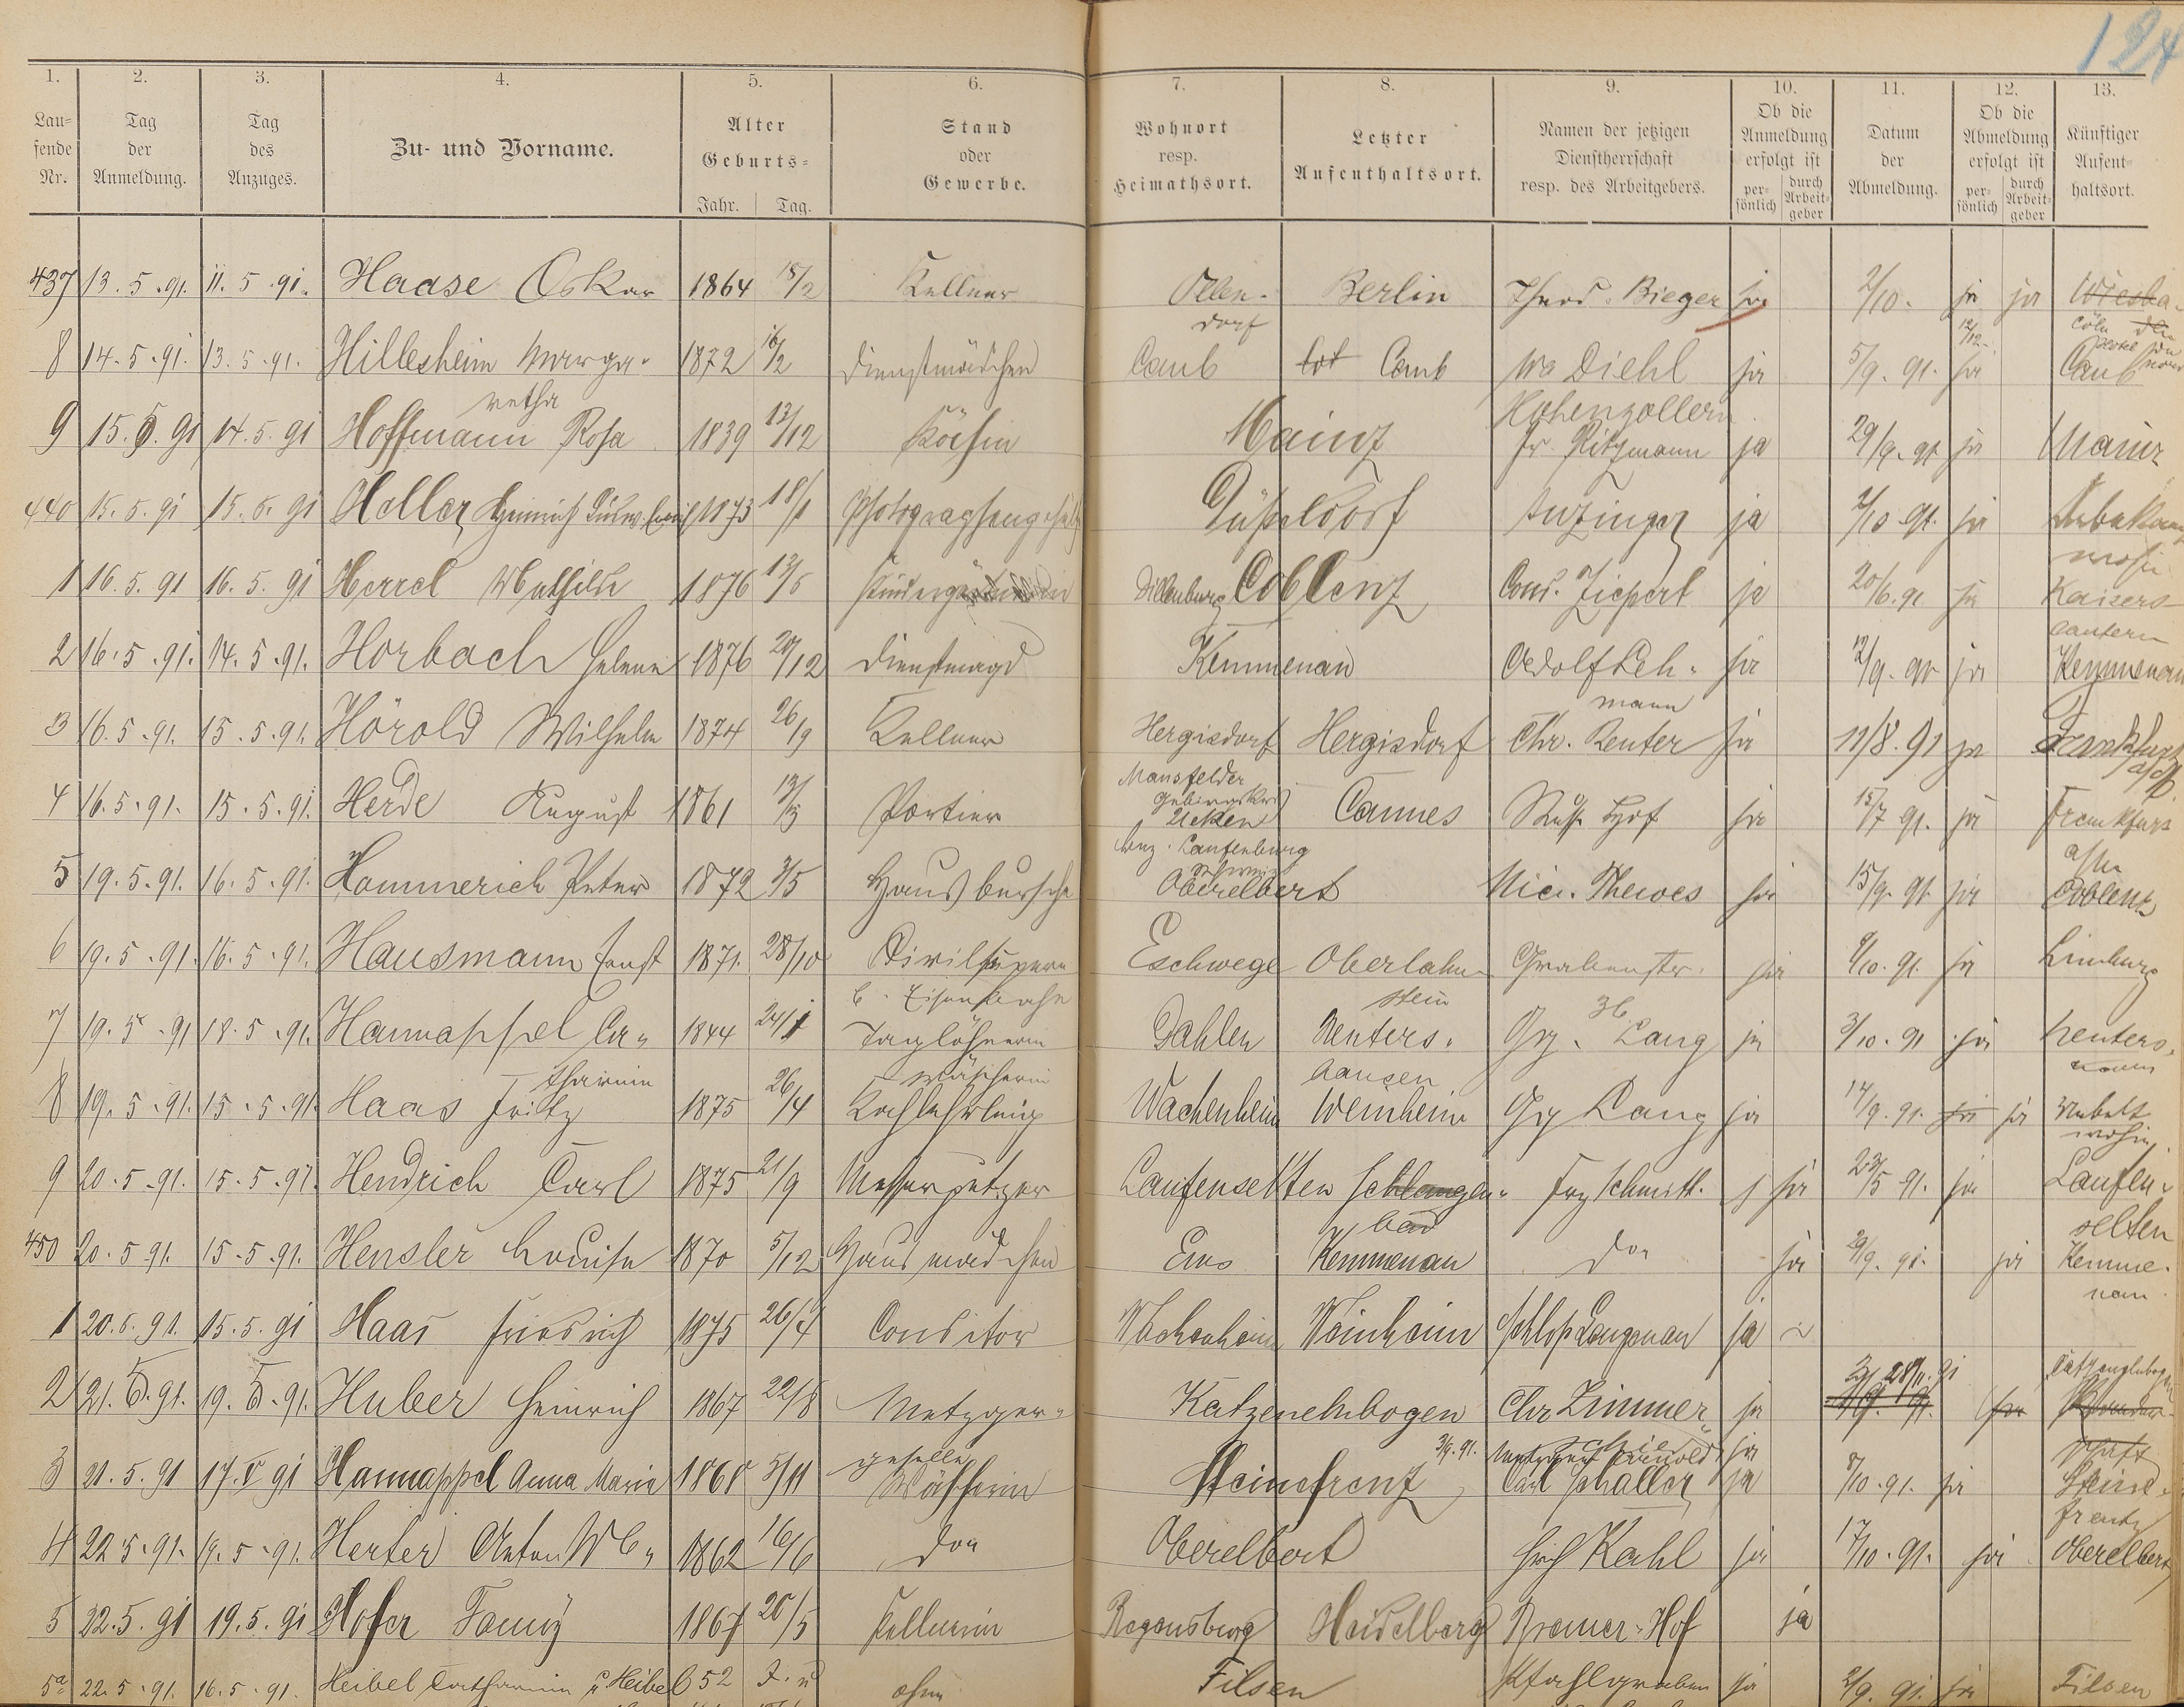 124
1. 2. 3. 4. 5. 6. 7. 8. 9. 10. 11. 12. 13.
Lau=fende Nr. Tag der Anmeldung. Tag des Anzuges. Zu- und Vorname. Alter Geburts= Jahr. Tag. Stand oder Gewerbe. Wohnort resp. Heimathsort. Letzter Aufenthaltsort. Namen der jetzigen Dienstherrschaft resp. des Arbeitgebers. Ob die Anmeldung erfolgt ist per=sönlich durch Arbeit=geber Datum der Abmeldung. Ob die Abmeldung erfolgt ist per=sönlich durch Arbeit=geber Künftiger Aufent=haltsort.
437 13.5.91. 11.5.91. Haase Oskar 1864 18/2 Kellner Berlin Theod. Bieger ja 2/10. ja ja Wiesba-
dorf 12/12. Cöln den
8 14.5.91. 13.5.91. Hillesheim Marga- 1872 16/2 Dienstmädchen Caub Caub Wb Diehl ja 5/9.91. ja Caub
retha Hohenzollern
9 15.5.91 14.5.91 Hoffmann Rosa 1839 13/12 Köchin Mainz Fr. Ritzmann ja 29/9.91 ja Mainz
440 15.5.91 15.5.91 Heller Heinrich 1873 18/1 Photographengehülfe Düsseldorf Anzinger ja 2/10.91. ja Unbekannt
wohin
1 16.5.91 16.5.91 Herrel Mathilde 1876 13/5 Dillenburg Coblenz Cond. Ziepert ja 20/6.91 ja Kaisers-
lautern
2 16.5.91. 14.5.91. Horbach Helene 1876 20/12 Dienstmagd Kemmenau Adolf Leh- ja 12/9.91 ja Kemmenau
mann
3 16.5.91. 15.5.91. Hörold Wilhelm 1874 26/9 Kellner Hergisdorf Hergisdorf Chr. Reuter ja 11/8.91 ja Frankfurt
Mansfelder Gebirgskrs a/M.
4 16.5.91. 15.5.91. Herde August 1861 Portier Ueken Cannes Russ. Hof ja 15/7 91. ja Frankfurt
Bez. Laufenburg Schweiz a/M
5 19.5.91. 16.5.91. Hommerich Peter 1872 3/5 Hausbursche Oberelbert Nic. Thewes ja 15/9.91. ja Coblenz
6 19.5.91. 16.5.91. Hausmann Ernst 1871. 28/10 Eschwege Oberlahn- Grabenstr. ja 9/10.91. ja Limburg
b. Eisenbahn stein 36
7 19.5.91 18.5.91. Hannappel Ca- 1844 24/1 Taglöhnerin Dahlen Renters- Gg. Lang ja 3/10.91 ja
tharina Wäscherin hausen
8 19.5.91. 15.5.91. Haas Fritz 1875 26/4 Kochlehrling Wachenheim Weinheim Gg Lang ja 14/9.91. ja ja Unbekt
wohin
9 20.5.91. 15.5.91. Hendrich Carl 1875 21/9 Messerputzer Laufenselten Schlangen- Frz Schmitt. ja 23/5 91. ja Laufen-
bad selten
450 20.5.91. 15.5.91. Hensler Louise 1870 5/12 Hausmädchen Ems Kemmenau do ja 29/9.91. ja Kemme-
nau
1 20.5.91. 15.5.91 Haas Friedrich 1875 26/4 Conditor Wachenheim Weinheim Schloss Langenau ja
2 21.5.91. 19.5.91. Huber Heinrich 1867 22/8 Metzger- Katzenelnbogen Chr Zimmer ja 28/11.91 ja Katzenelnbogen
geselle 3/9.91. Metzgerei Arnold ja
3 21.5.91 17.V 91 Hannappel Anna Maria 1868 5/11 Wäscherin Steinefrenz Carl Schaller ja 8/10.91. ja Steine-
frenz
4 22.5.91. 19.5.91. Herter Anton Wb. 1862 16/6 do Oberelbert Hch Kahl ja 17/10.91. ja Oberelbert
5 22.5.91 19.5.91 Hofer Fanny 1867 20/5 Kellnerin Regensburg Heidelberg Bremer-Hof ja
5a 22.5.91. 16.5.91. Heibel Catharina u Heibel 52 J. ohne Filsen Pfahlgraben ja 2/9.91. ja Filsen